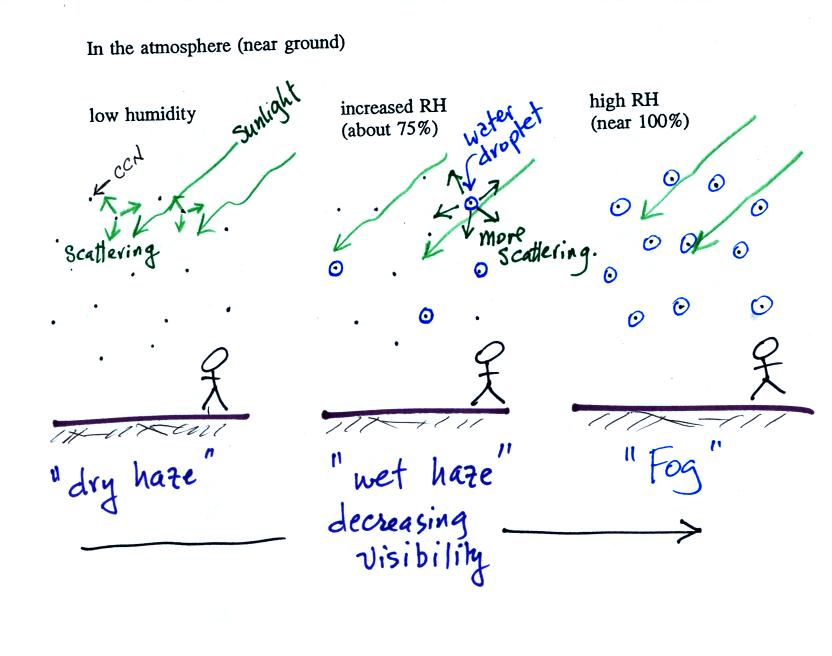 In the atmosphere (near ground)
low humidity
CCN
Sunlight
Scattering
"dry haze"
increased RH
(about 75%)
water
droplet
more
scattering.
"wet haze"
high RH
(near 100%)
"Fog"
decreasing
visibility